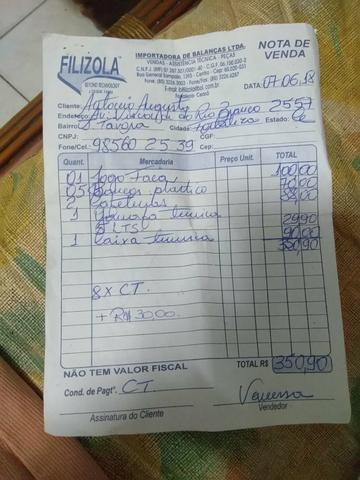 FILIZOLA
BEYOND TECHNOLOGY
IMPORTADORA DE BALANÇAS LTDA.
VENDAS - ASSISTÊNCIA TÉCNICA - PEÇAS
Fortaleza Ceará
NOTA DE
VENDA
DATA: 07.06.18
Cliente: Antonio Augusto
Endereço: Av. Visconde do Rio Branco 2557
Bairro: Cidade: Fortaleza Estado: Ce
CNPJ: CGF:
Fone/Cel.: 98560 25 39 Cep:
Quant. Mercadoria Preço Unit. TOTAL
01 Jogo Faca 100,00
plastico 70,00
2
1 Garrafa termica 29,90
5 LTS
1 Caixa termica 90,00
350,90
8x CT.
+ R$ 30,00.
NÃO TEM VALOR FISCAL TOTAL R$ 350,90
Cond. de Pagtº. CT
Assinatura do Cliente
Vanessa
Vendedor